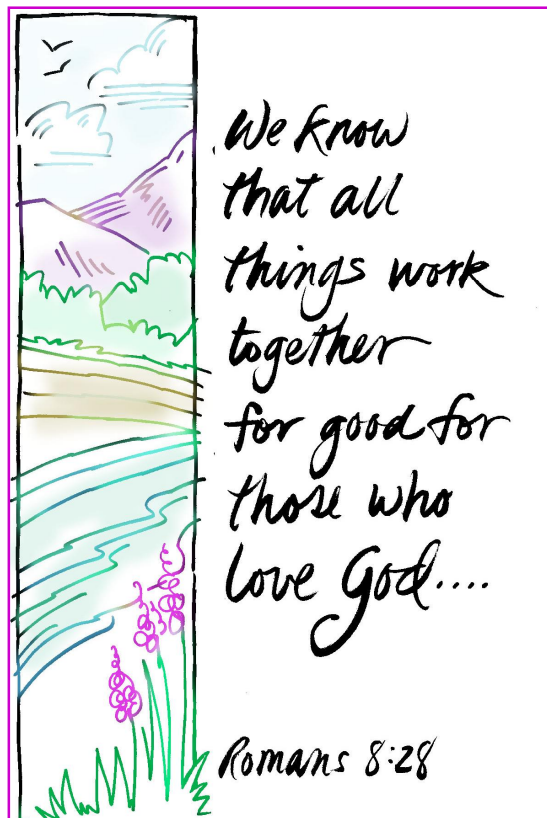 We know
that all
things work
together
for good for
those who
love God....
Romans 8:28